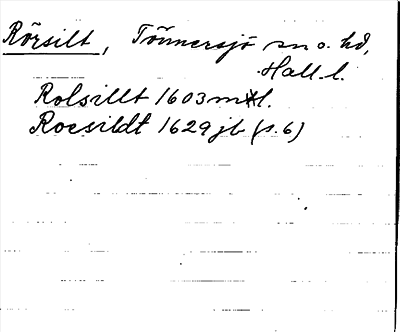 Rörsilt, Tönnersjö sn o. hd,
Hall. l.
Rolsillt 1603 mtl.
Roesildt 1629 jb (s. 6)